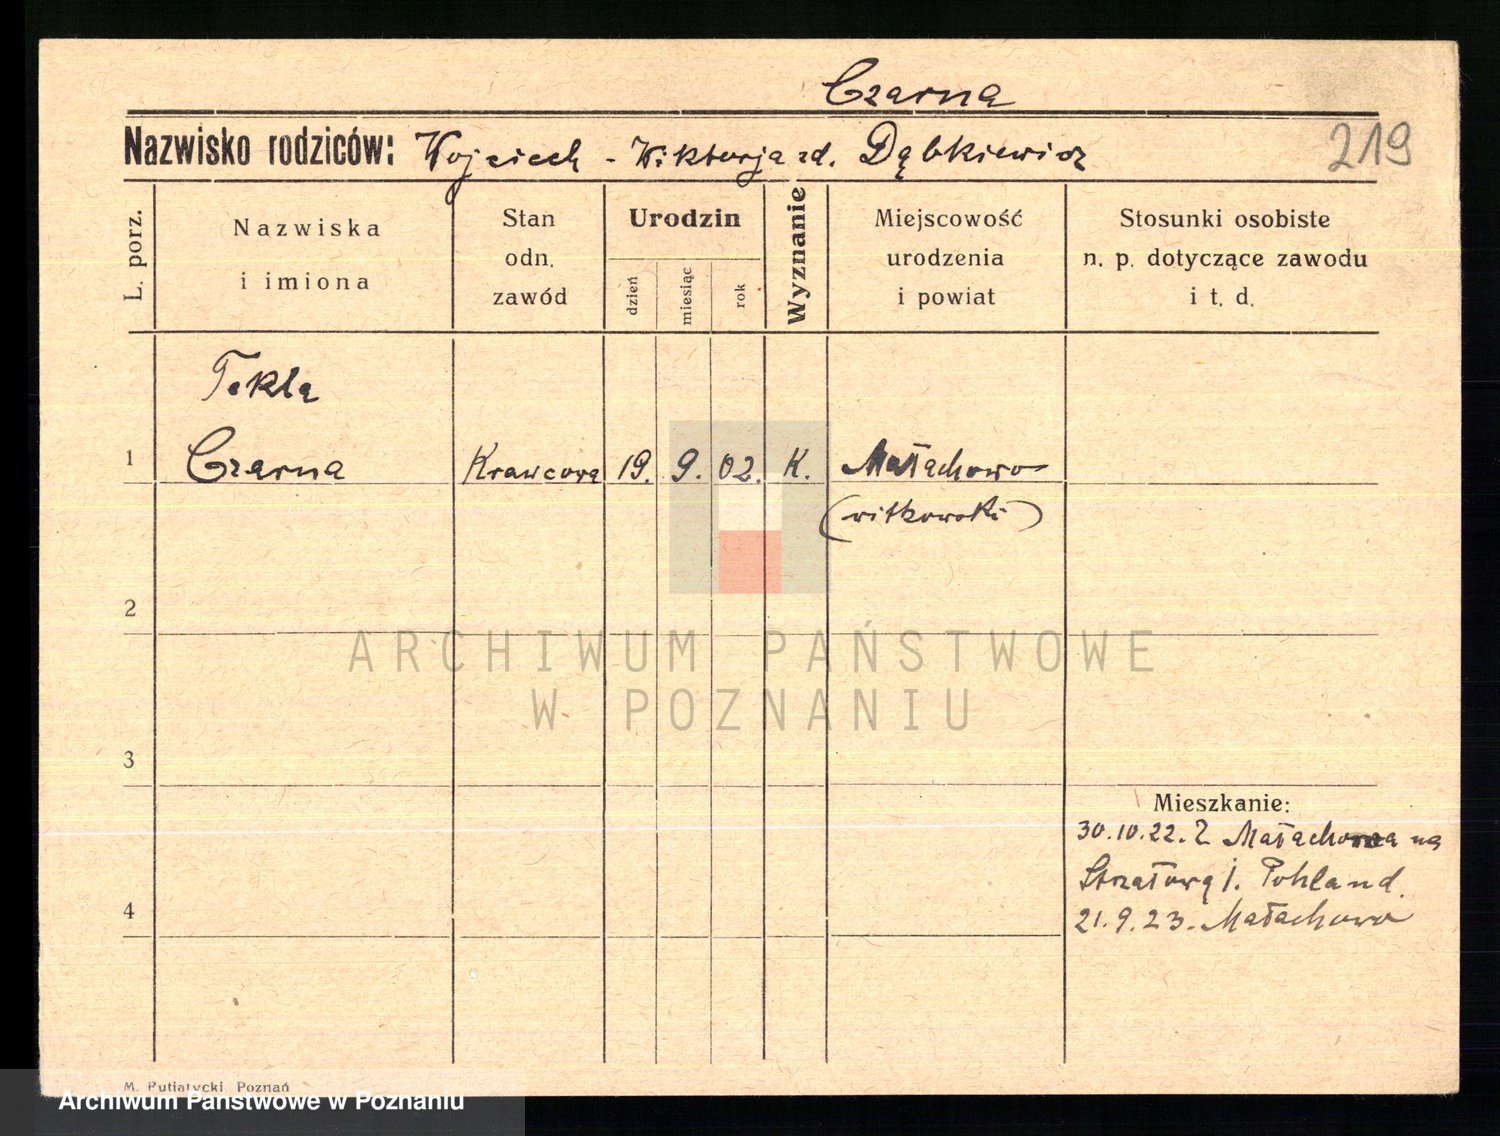 Czarna
Nazwisko rodziców: Wojciech - Wiktorja zd. Dąbkiewicz
219
L. porz.
Nazwiska
i imiona
Stan
odn.
zawód
Urodzin
dzień
miesiąc
rok
Wyznanie
Miejscowość
urodzenia
i powiat
Stosunki osobiste
n. p. dotyczące zawodu
i t. d.
Tekla
1 Czarna Krawcowa 19. 9. 02. K. Małachowo
(witkowski)
2
ARCHIWUM PAŃSTWOWE
W POZNANIU
3
Mieszkanie:
30.10.22. Z Małachowa na
Strzałową j. Pohland.
4
21.9.23. Małachowo
M. Putiatycki, Poznań
Archiwum Państwowe w Poznaniu